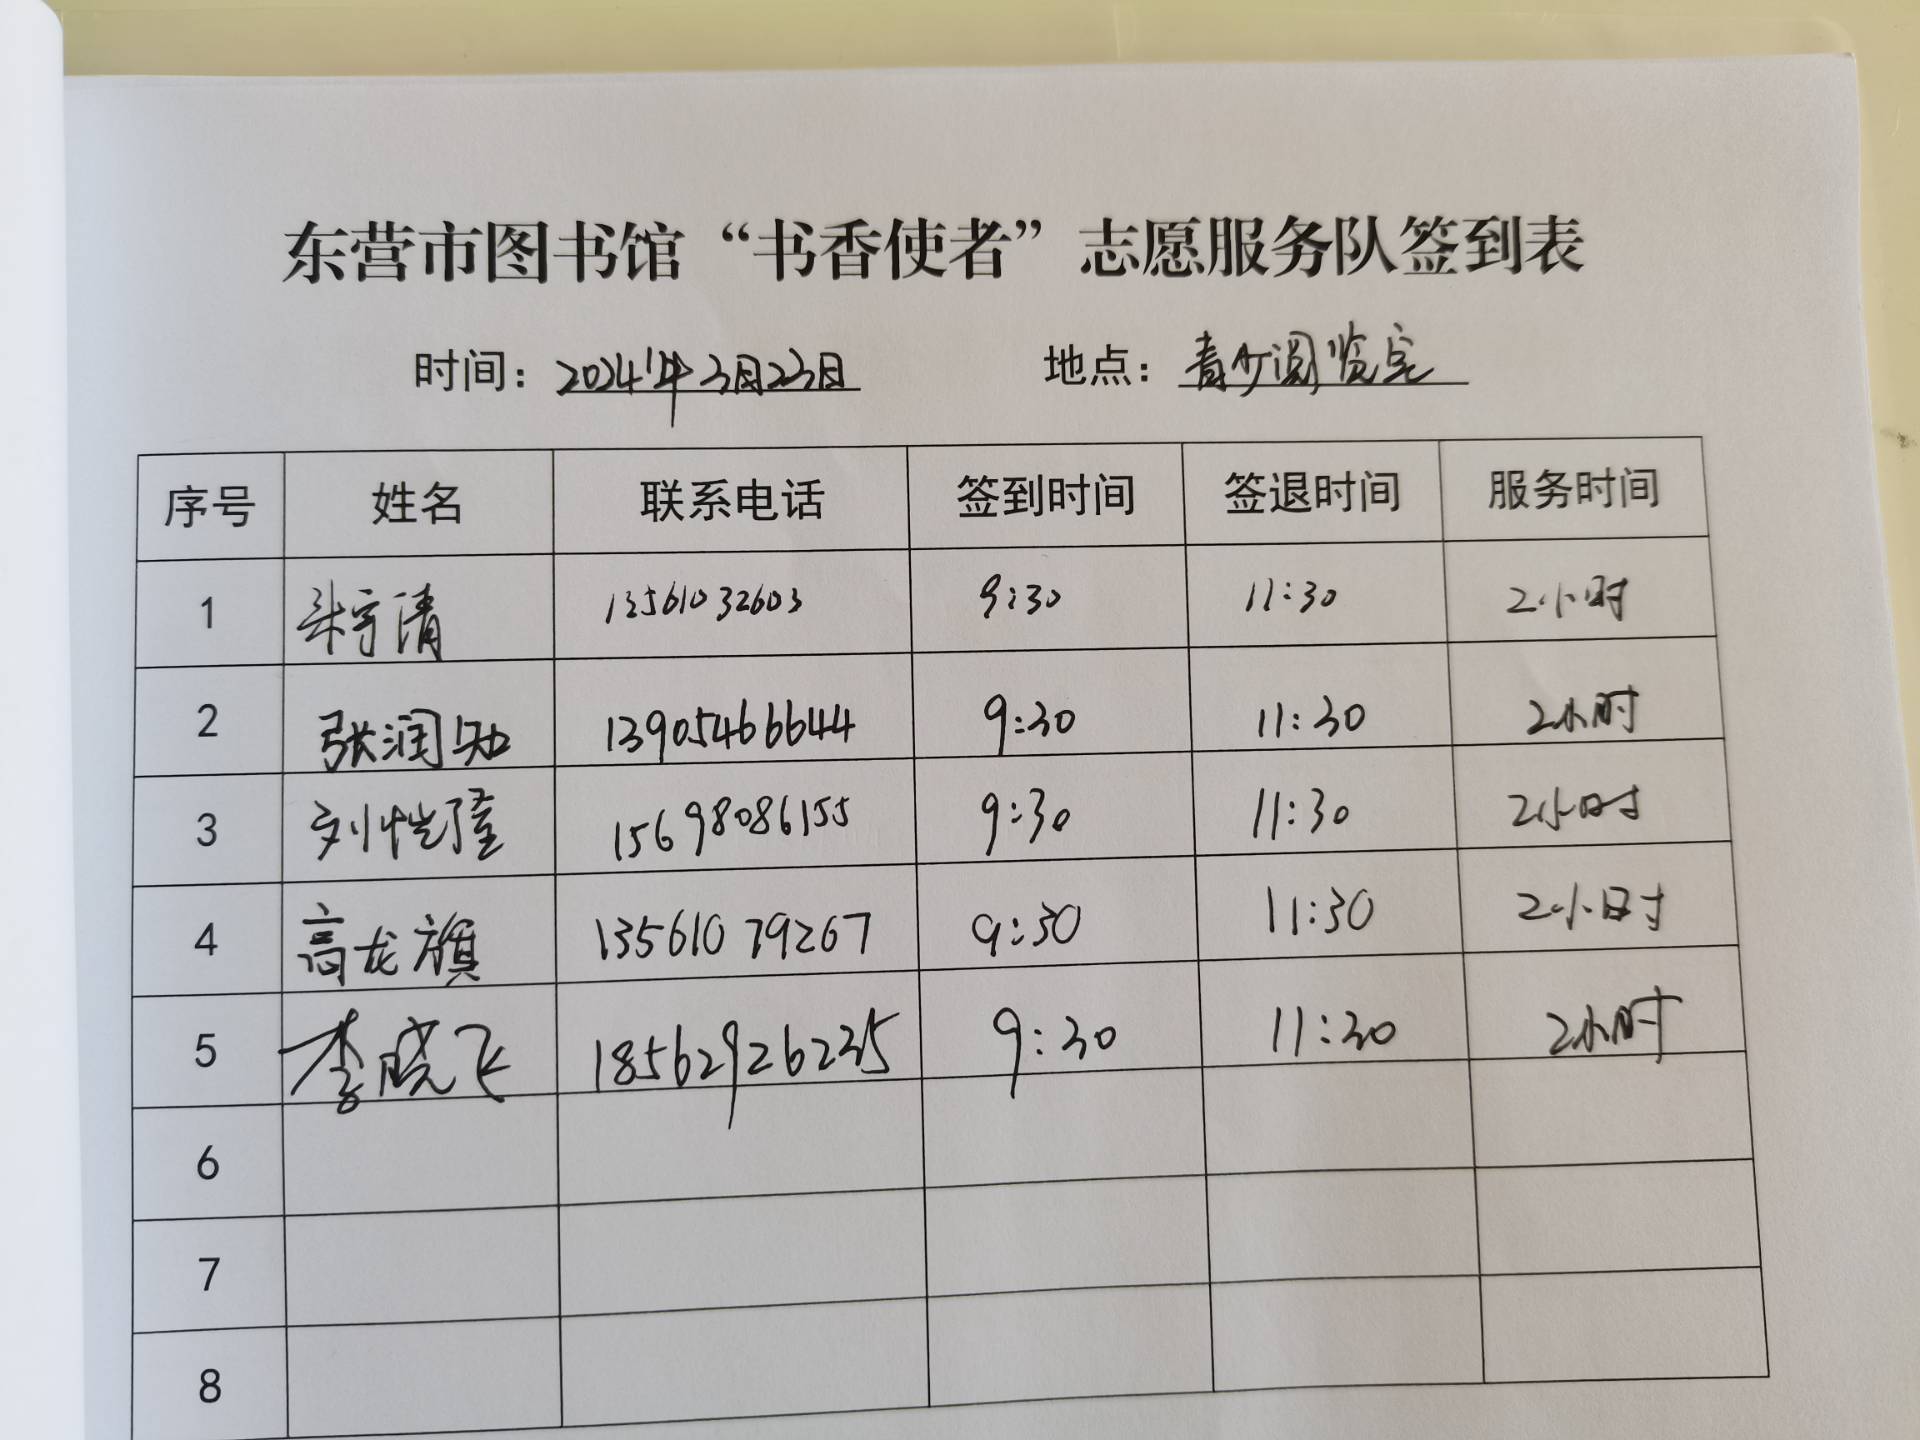 东营市图书馆“书香使者”志愿服务队签到表
时间：2024年3月23日 地点：青少阅览室
序号 姓名 联系电话 签到时间 签退时间 服务时间
1 张宇清 13561032603 9:30 11:30 2小时
2 张润 13905466644 9:30 11:30 2小时
3 刘恺隆 15698086155 9:30 11:30 2小时
4 高龙旗 13561079267 9:30 11:30 2小时
5 李晓飞 18562926235 9:30 11:30 2小时
6
7
8